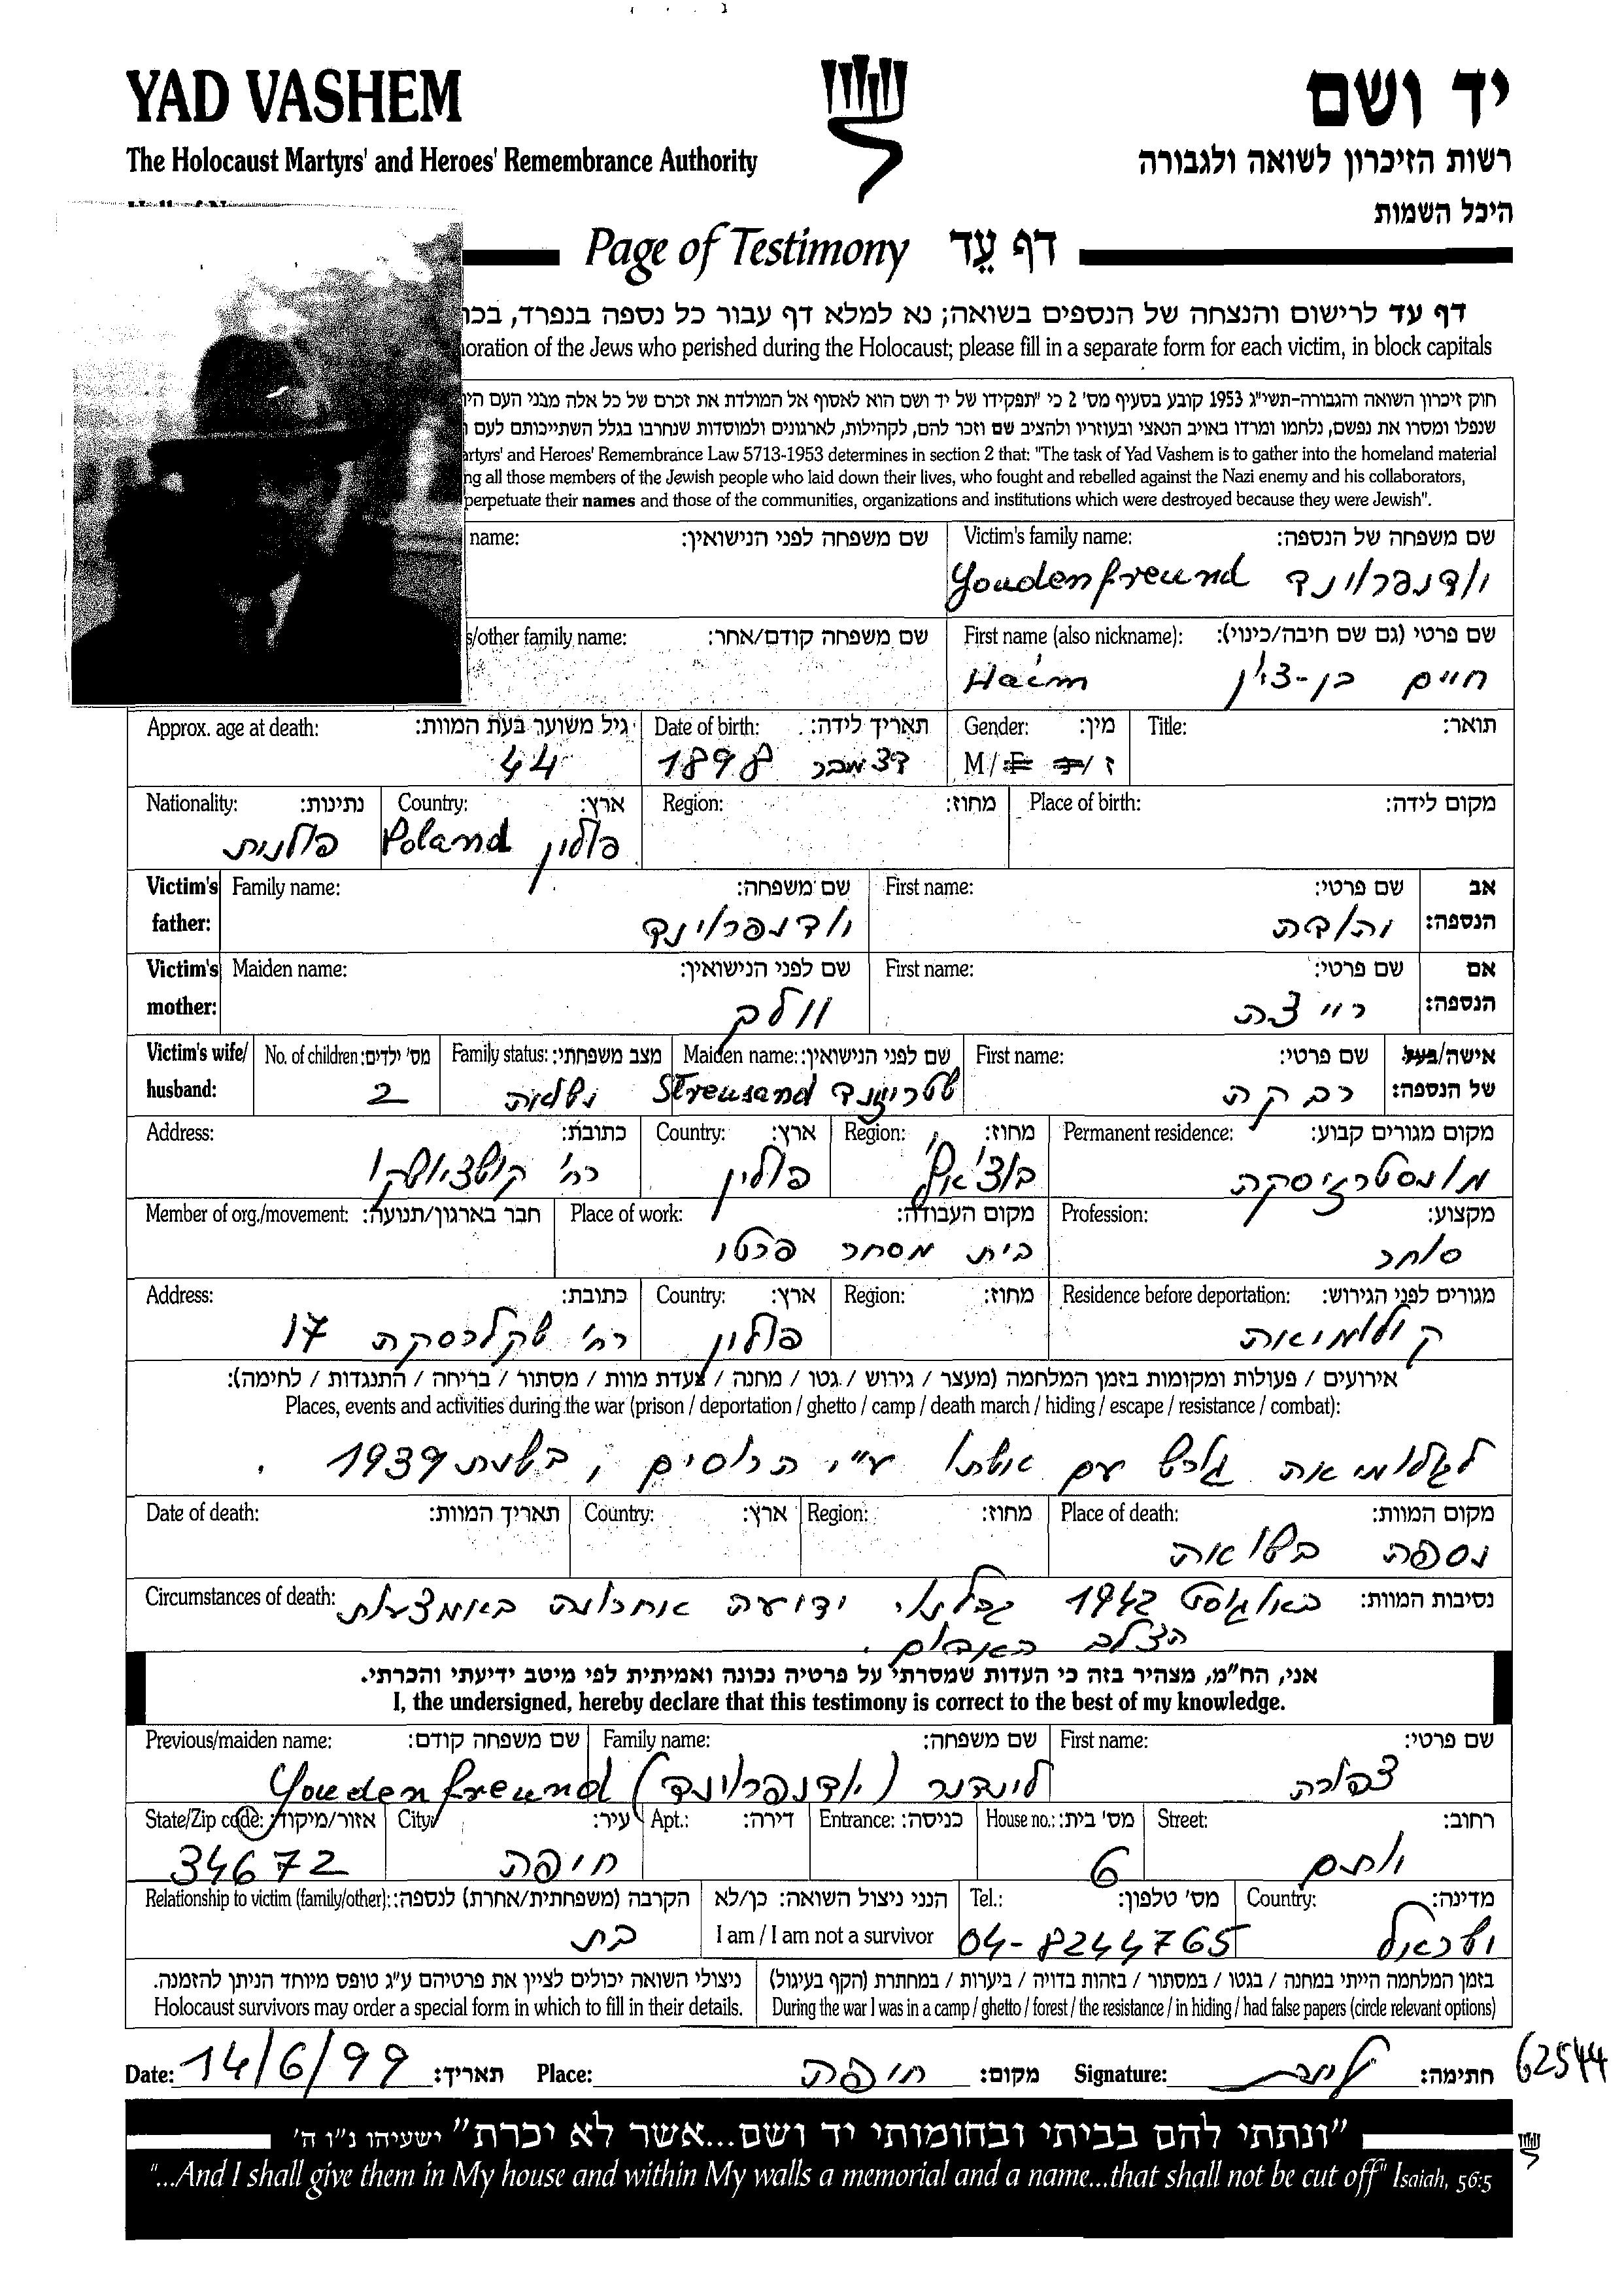 YAD VASHEM
יד ושם
The Holocaust Martyrs' and Heroes' Remembrance Authority
רשות הזיכרון לשואה ולגבורה
היכל השמות
Page of Testimony דף עֵד
דף עד לרישום והנצחה של הנספים בשואה; נא למלא דף עבור כל נספה בנפרד,
of the Jews who perished during the Holocaust; please fill in a separate form for each victim, in block capitals
חוק זיכרון השואה והגבורה-תשי"ג 1953 קובע בסעיף מס' 2 כי "תפקידו של יד ושם הוא לאסוף אל המולדת את זכרם של כל אלה מבני העם
שנפלו ומסרו את נפשם, נלחמו ומרדו באויב הנאצי ובעוזריו ולהציב שם וזכר להם, לקהילות, לארגונים ולמוסדות שנחרבו בגלל השתייכותם לעם
and Heroes' Remembrance Law 5713-1953 determines in section 2 that: "The task of Yad Vashem is to gather into the homeland material
all those members of the Jewish people who laid down their lives, who fought and rebelled against the Nazi enemy and his collaborators,
perpetuate their names and those of the communities, organizations and institutions which were destroyed because they were Jewish".
name: שם משפחה לפני הנישואין: Victim's family name: שם משפחה של הנספה:
Youdenfreund יודנפרוינד
/other family name: שם משפחה קודם/אחר: First name (also nickname): שם פרטי (גם שם חיבה/כינוי):
Haim חיים בן-ציון
Approx. age at death: גיל משוער בעת המוות: Date of birth: תאריך לידה: Gender: מין: Title: תואר:
44 1898 דצמבר M/F ז/נ
Nationality: נתינות: Country: ארץ: Region: מחוז: Place of birth: מקום לידה:
פולנית Poland פולין
Victim's father: Family name: שם משפחה: First name: שם פרטי: אב הנספה:
יודנפרוינד יהודה
Victim's mother: Maiden name: שם לפני הנישואין: First name: שם פרטי: אם הנספה:
וולק רייצה
Victim's wife/ husband: No. of children: מס' ילדים: Family status: מצב משפחתי: Maiden name: שם לפני הנישואין: First name: שם פרטי: אישה/בעל של הנספה:
2 נשואה Streusand רבקה
Address: כתובת: Country: ארץ: Region: מחוז: Permanent residence: מקום מגורים קבוע:
רח' פולין בוצ'אץ' מונסטרזיסקה
Member of org./movement: חבר בארגון/תנועה: Place of work: מקום העבודה: Profession: מקצוע:
בית מסחר פרטי סוחר
Address: כתובת: Country: ארץ: Region: מחוז: Residence before deportation: מגורים לפני הגירוש:
רח' 17 פולין קולומיאה
אירועים / פעולות ומקומות בזמן המלחמה (מעצר / גירוש / גטו / מחנה / צעדת מוות / מסתור / בריחה / התנגדות / לחימה):
Places, events and activities during the war (prison / deportation / ghetto / camp / death march / hiding / escape / resistance / combat):
גורש עם אשתו ע"י הרוסים, בשנת 1939.
Date of death: תאריך המוות: Country: ארץ: Region: מחוז: Place of death: מקום המוות:
נספה בשואה
Circumstances of death: נסיבות המוות:
באוגוסט 1942 ידיעה אחרונה באמצעות
הצלב האדום.
אני, הח"מ, מצהיר בזה כי העדות שמסרתי על פרטיה נכונה ואמיתית לפי מיטב ידיעתי והכרתי.
I, the undersigned, hereby declare that this testimony is correct to the best of my knowledge.
Previous/maiden name: שם משפחה קודם: Family name: שם משפחה: First name: שם פרטי:
Youdenfreund (יודנפרוינד) לינדנר צפורה
State/Zip code: אזור/מיקוד: City: עיר: Apt.: דירה: Entrance: כניסה: House no.: מס' בית: Street: רחוב:
34672 חיפה 6 יותם
Relationship to victim (family/other): הקרבה (משפחתית/אחרת) לנספה: הנני ניצול השואה: כן/לא I am / I am not a survivor Tel.: מס' טלפון: Country: מדינה:
בת 04-8244765 ישראל
ניצולי השואה יכולים לציין את פרטיהם ע"ג טופס מיוחד הניתן להזמנה. בזמן המלחמה הייתי במחנה / בגטו / במסתור / בזהות בדויה / ביערות / במחתרת (הקף בעיגול)
Holocaust survivors may order a special form in which to fill in their details. During the war I was in a camp / ghetto / forest / the resistance / in hiding / had false papers (circle relevant options)
Date: 14/6/99 תאריך: Place: חיפה מקום: Signature: חתימה: 62544
"ונתתי להם בביתי ובחומותי יד ושם...אשר לא יכרת" ישעיהו נ"ו ה'
"...And I shall give them in My house and within My walls a memorial and a name...that shall not be cut off" Isaiah, 56:5